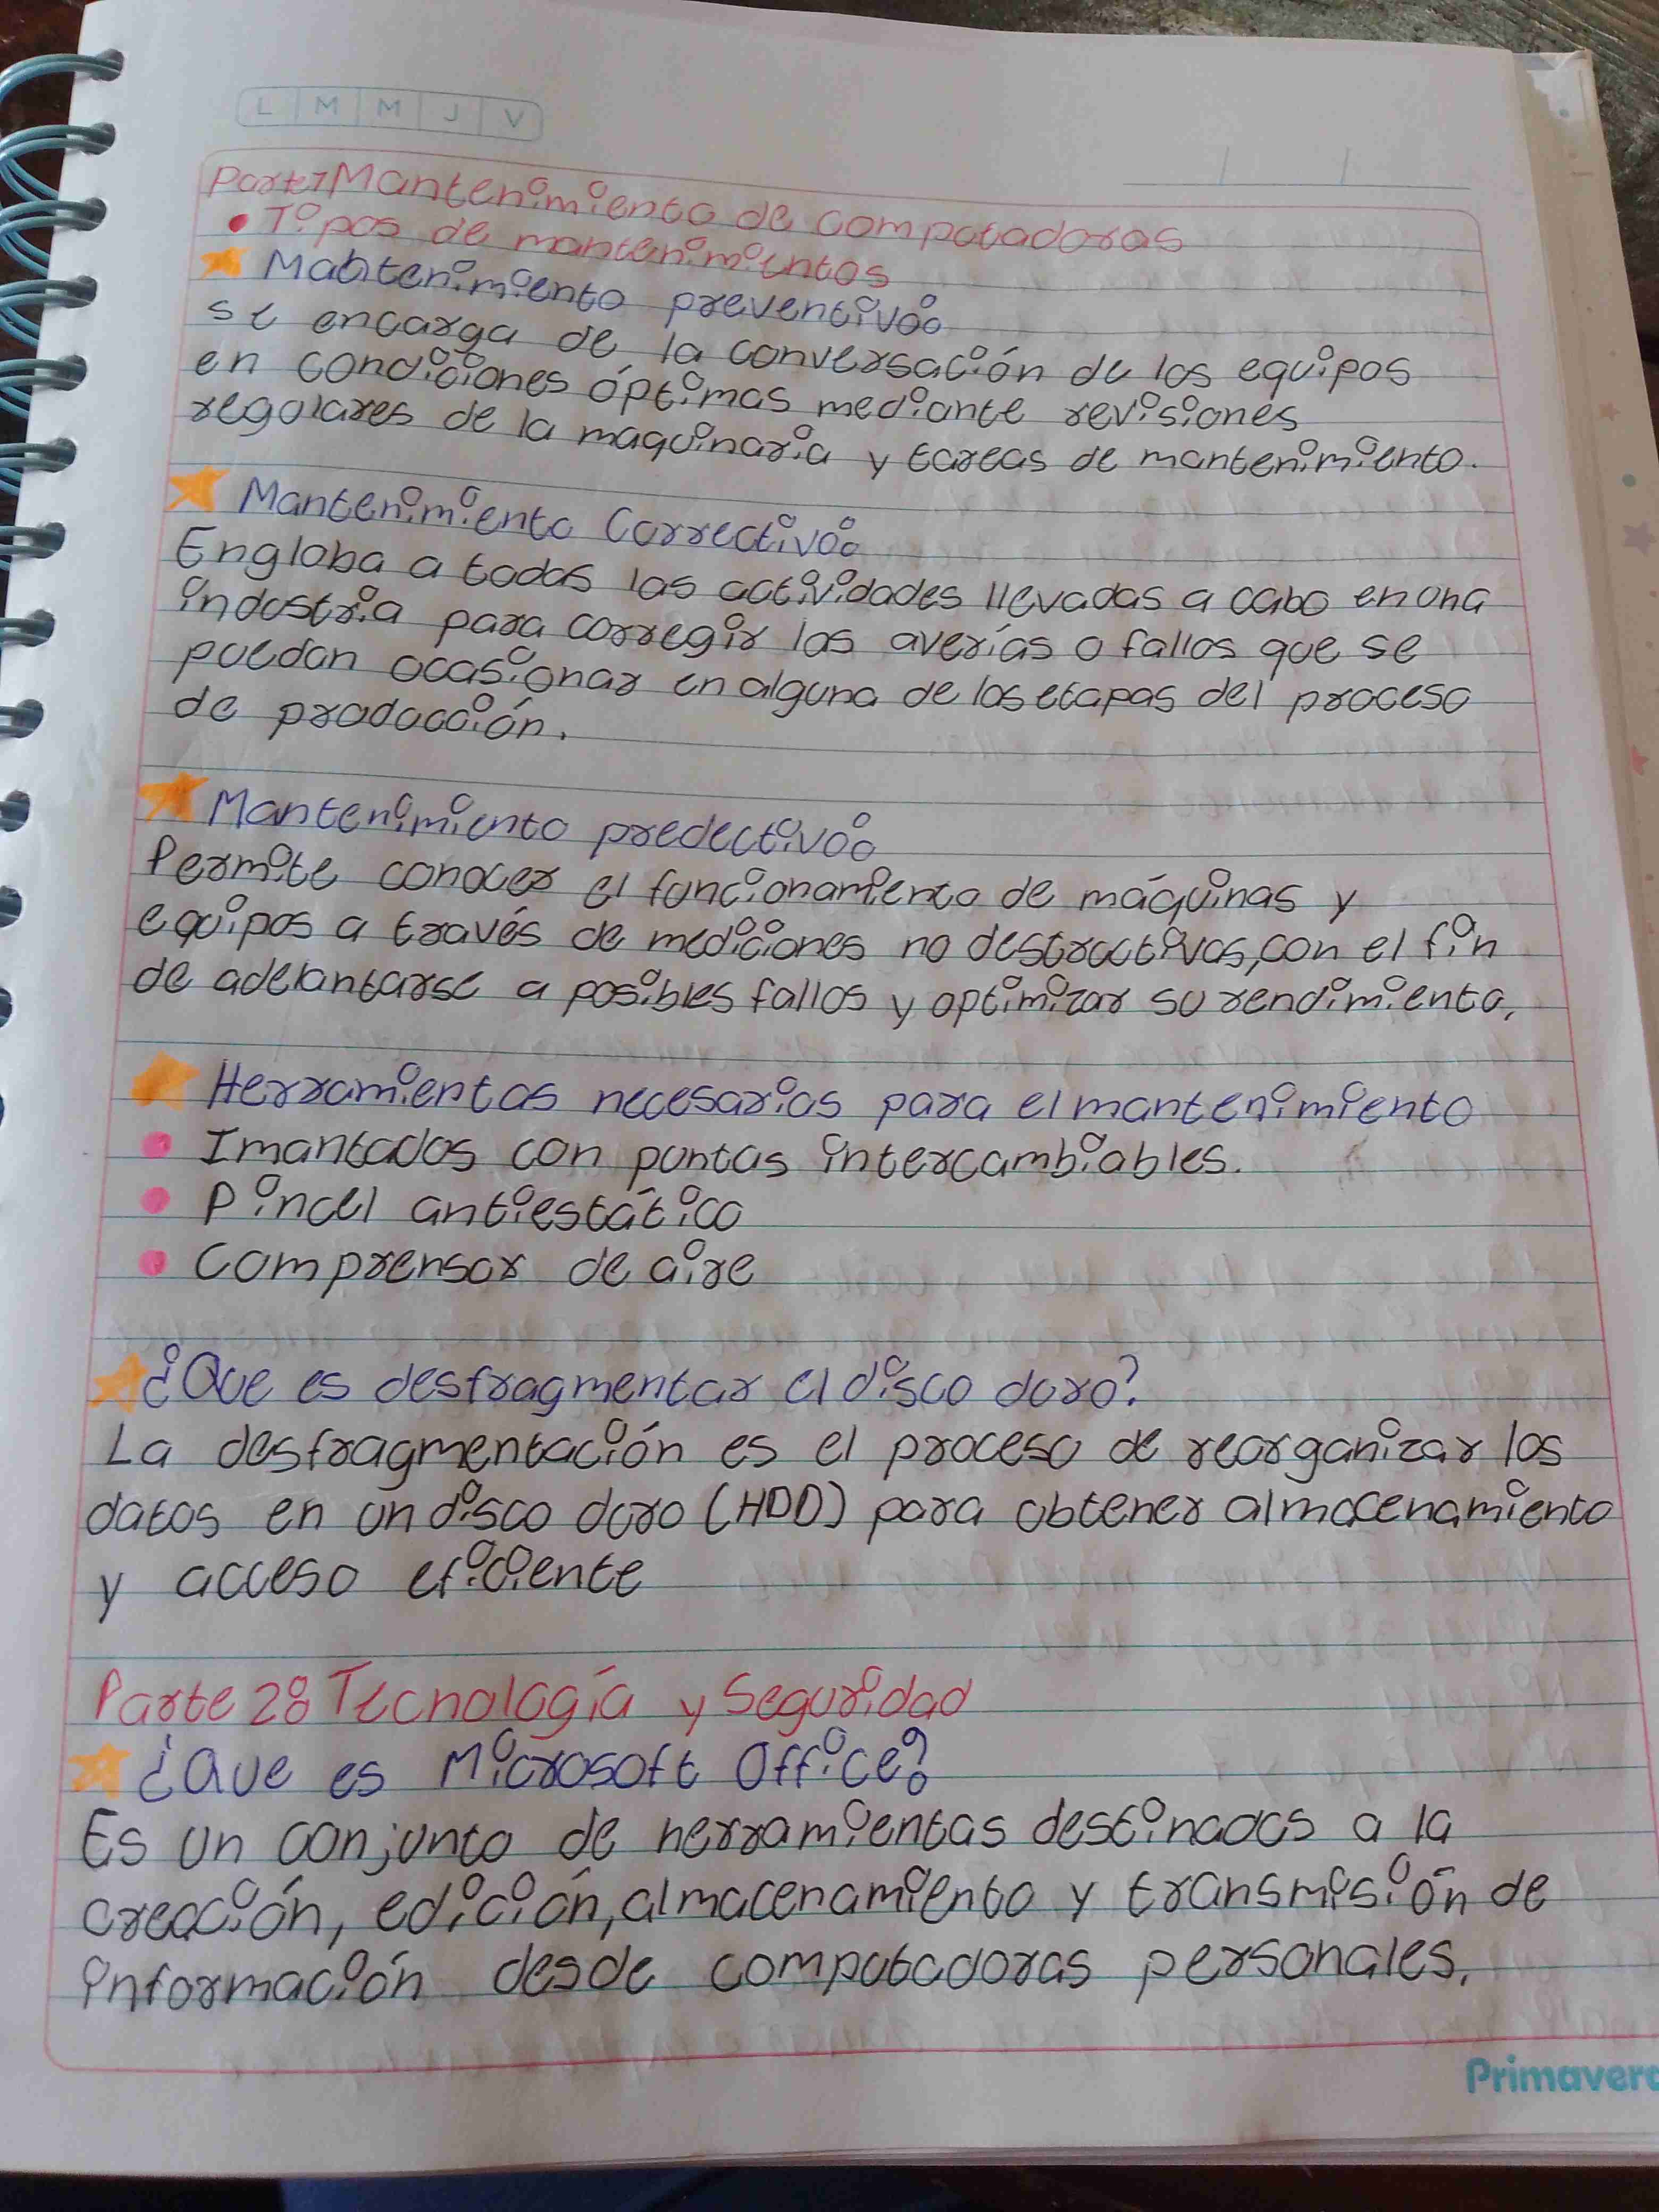 L M M J V
Parte 1 Mantenimiento de computadoras
• Tipos de mantenimientos
Mantenimiento preventivo:
se encarga de la conversación de los equipos
en condiciones óptimas mediante revisiones
regulares de la maquinaria y tareas de mantenimiento.
Mantenimiento Correctivo:
Engloba a todas las actividades llevadas a cabo en una
industria para corregir las averías o fallos que se
puedan ocasionar en alguna de las etapas del proceso
de producción.
Mantenimiento predectivo:
Permite conocer el funcionamiento de máquinas y
equipos a través de mediciones no destructivas, con el fin
de adelantarse a posibles fallos y optimizar su rendimiento,
Herramientas necesarias para el mantenimiento
• Imantados con puntas intercambiables.
• Pincel antiestático
• Comprensor de aire
¿Que es desfragmentar el disco duro?
La desfragmentación es el proceso de reorganizar los
datos en un disco duro (HDD) para obtener almacenamiento
y acceso eficiente
Parte 2: Tecnología y Seguridad
¿Que es Microsoft Office?
Es un conjunto de herramientas destinadas a la
creación, edición, almacenamiento y transmisión de
información desde computadoras personales.
Primavera